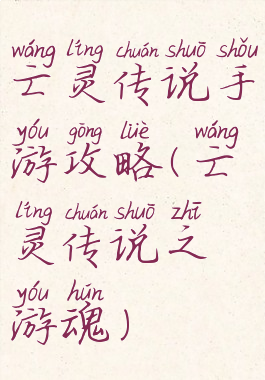 wáng líng chuán shuō shǒu
亡灵传说手
yóu gōng lüè wáng
游攻略(亡
líng chuán shuō zhī
灵传说之
yóu hún
游魂)